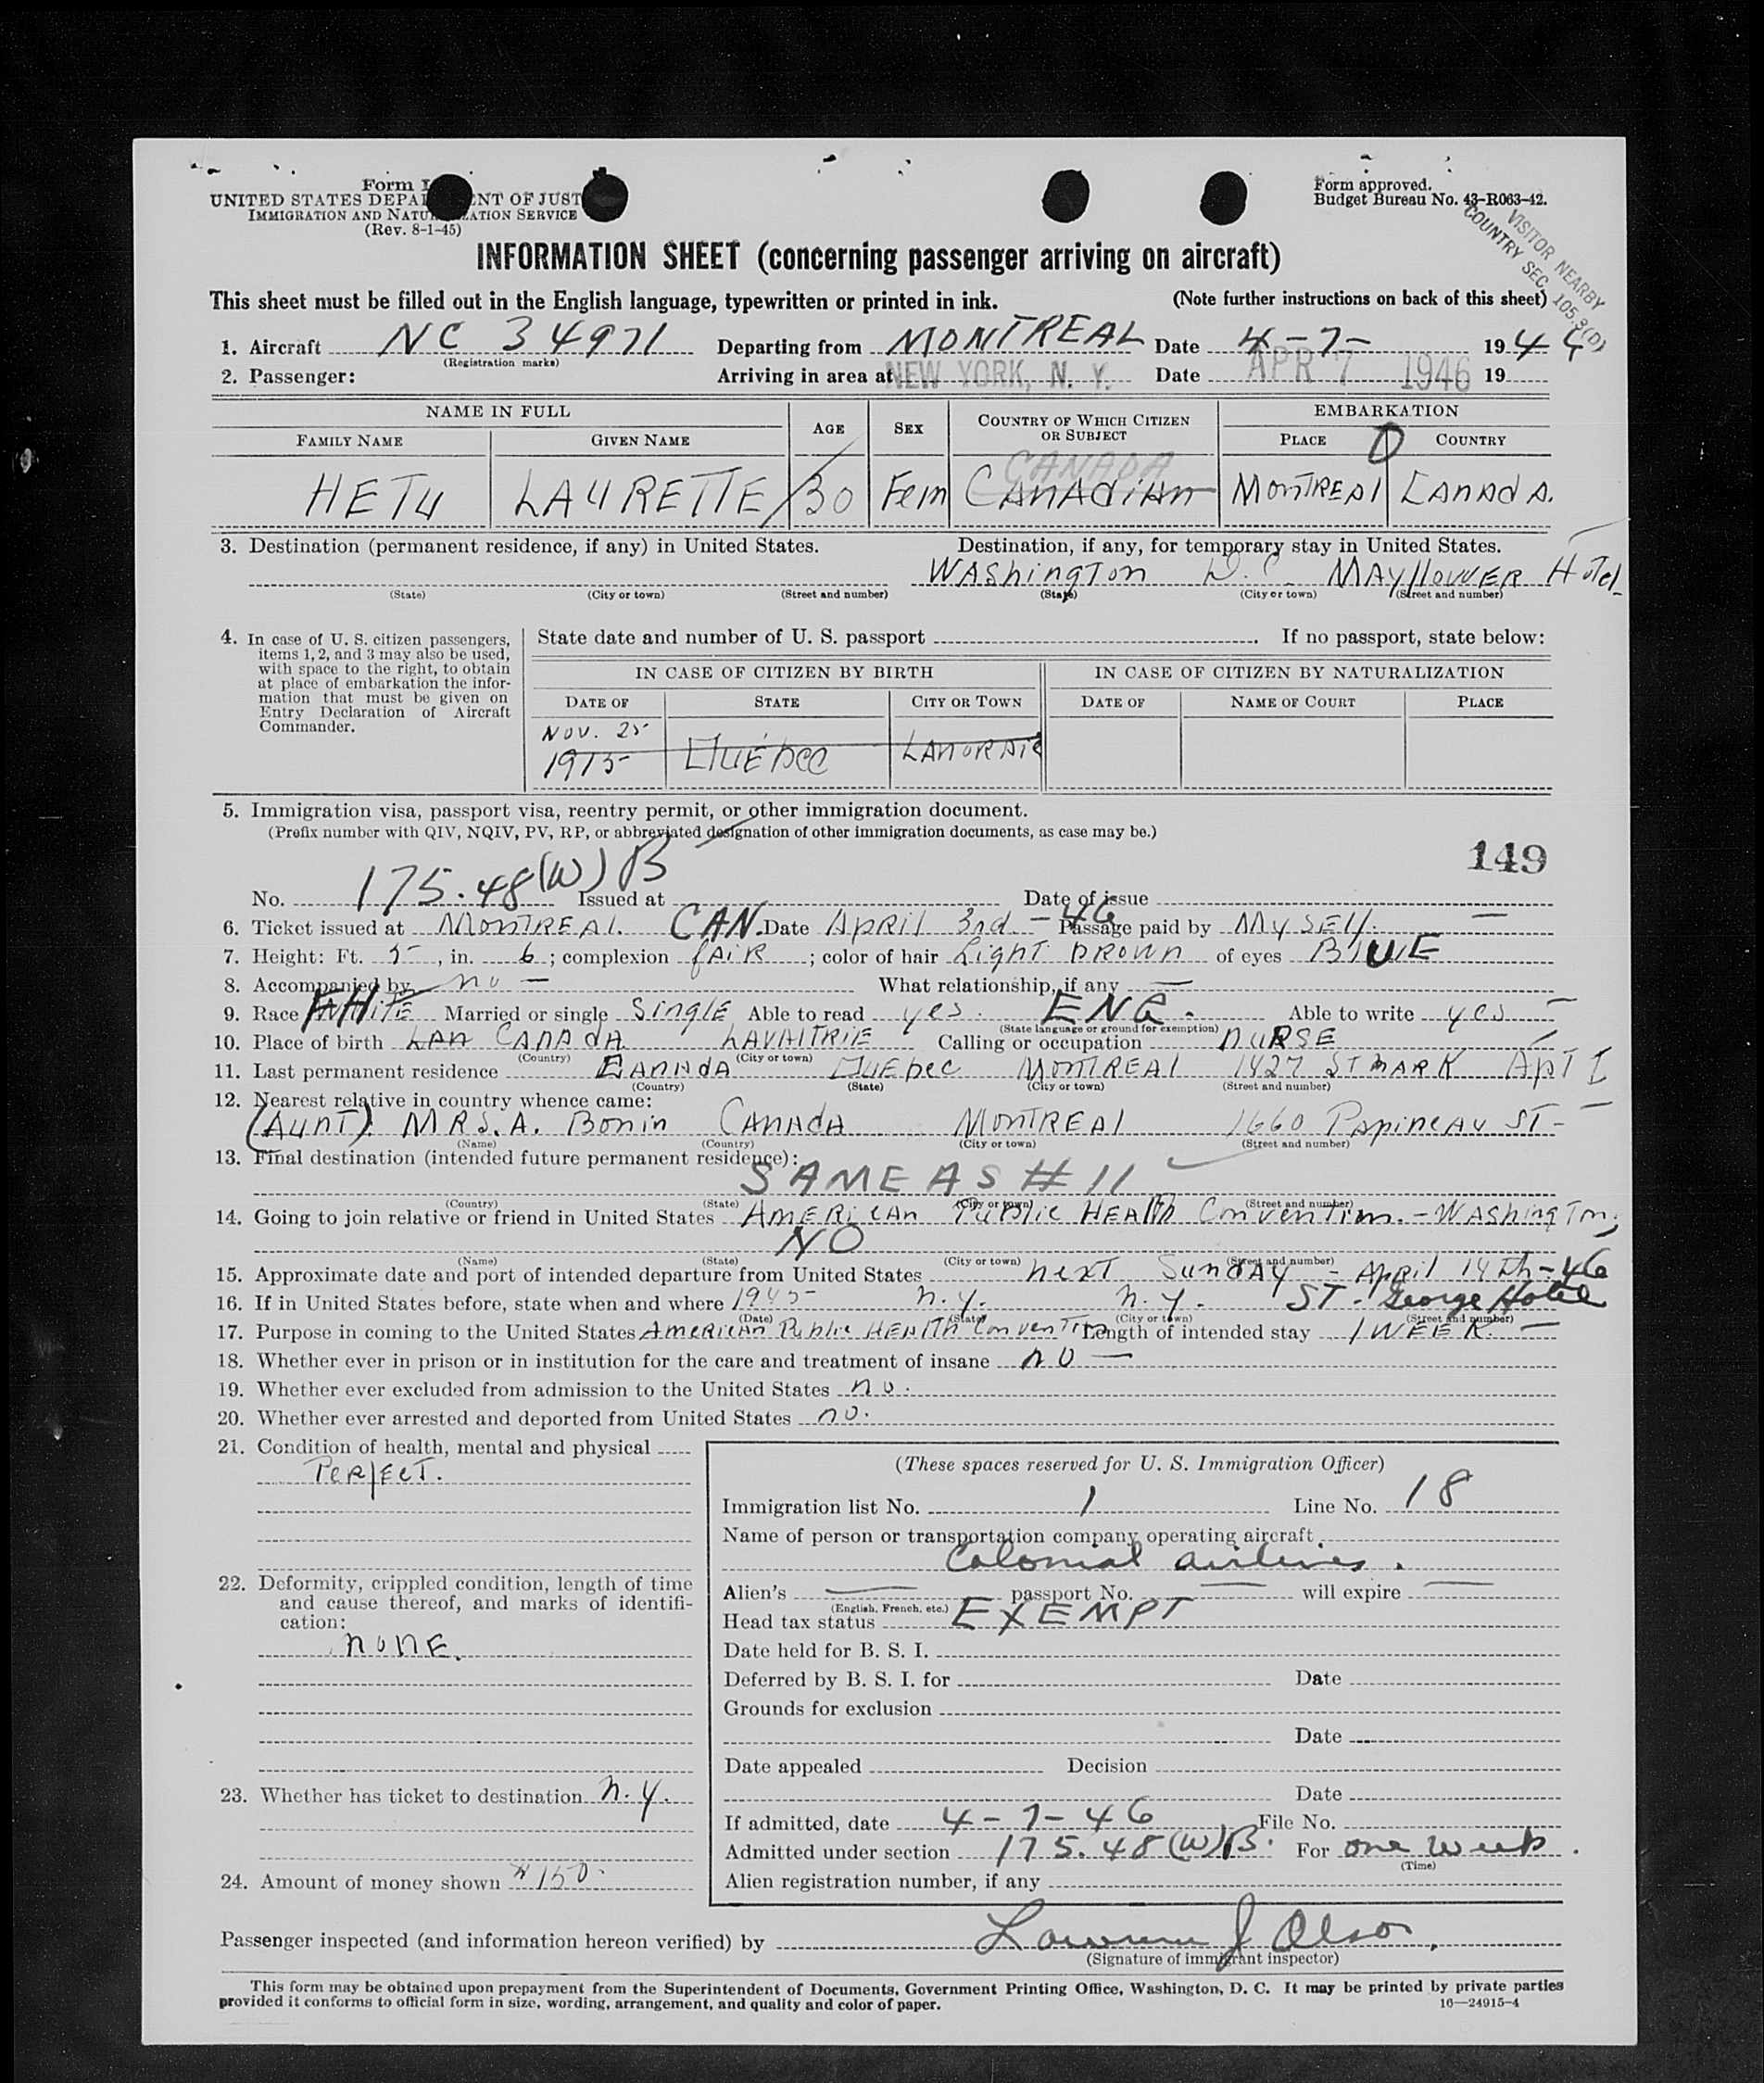 Form I
UNITED STATES DEPA NT OF JUST
IMMIGRATION AND NATU ATION SERVICE
(Rev. 8-1-45)
Form approved.
Budget Bureau No. 43-R063-42.
VISITOR NEARBY
COUNTRY SEC. 105.3(D)
INFORMATION SHEET (concerning passenger arriving on aircraft)
This sheet must be filled out in the English language, typewritten or printed in ink. (Note further instructions on back of this sheet)
1. Aircraft NC 34971 Departing from MONTREAL Date 4-7- 1946
(Registration marks)
2. Passenger: Arriving in area at NEW YORK, N. Y. Date APR 7 1946 19
NAME IN FULL AGE SEX COUNTRY OF WHICH CITIZEN OR SUBJECT EMBARKATION
FAMILY NAME GIVEN NAME PLACE COUNTRY
CANADA
HETU LAURETTE 30 Fem CANADIAN MONTREAL CANADA.
3. Destination (permanent residence, if any) in United States. Destination, if any, for temporary stay in United States.
WAShingTon D.C. MAYflowER HoTel
(State) (City or town) (Street and number) (State) (City or town) (Street and number)
4. In case of U. S. citizen passengers, items 1, 2, and 3 may also be used, with space to the right, to obtain at place of embarkation the information that must be given on Entry Declaration of Aircraft Commander.
State date and number of U. S. passport . If no passport, state below:
IN CASE OF CITIZEN BY BIRTH IN CASE OF CITIZEN BY NATURALIZATION
DATE OF STATE CITY OR TOWN DATE OF NAME OF COURT PLACE
NOV. 25
1915 QUÉbec LANORAIE
5. Immigration visa, passport visa, reentry permit, or other immigration document.
(Prefix number with QIV, NQIV, PV, RP, or abbreviated designation of other immigration documents, as case may be.)
149
No. 175.48(W) B Issued at Date of issue
6. Ticket issued at MONTREAL. CAN. Date APRIL 3rd - 46 Passage paid by MYSELf. —
7. Height: Ft. 5 , in. 6 ; complexion fAiR ; color of hair Light BROWN of eyes BLUE
8. Accompanied by no — What relationship, if any —
9. Race WHiTE Married or single SinglE Able to read yes. ENG. Able to write yes —
(State language or ground for exemption)
10. Place of birth CANADA LAVALTRIE Calling or occupation NURSE
(Country) (City or town)
11. Last permanent residence CANADA QUEbec MONTREAL 1427 ST MARK ApT I
(Country) (State) (City or town) (Street and number)
12. Nearest relative in country whence came:
(AUNT). MRS. A. Bonin CANADA MONTREAL 1660 PApineAu ST —
(Name) (Country) (City or town) (Street and number)
13. Final destination (intended future permanent residence):
SAME AS # 11
(Country) (State) (City or town) (Street and number)
14. Going to join relative or friend in United States AMERICAN Public HEAlTh ConvenTion. - WAShingTon,
NO
(Name) (State) (City or town) (Street and number)
15. Approximate date and port of intended departure from United States next SunDAY - April 14th - 46
16. If in United States before, state when and where 1945 n.y. n.y. ST. George Hotel
(Date) (State) (City or town) (Street and number)
17. Purpose in coming to the United States AmeRicAn Public HEAlTh ConvenTion Length of intended stay 1 WEEK. —
18. Whether ever in prison or in institution for the care and treatment of insane no —
19. Whether ever excluded from admission to the United States no.
20. Whether ever arrested and deported from United States no.
21. Condition of health, mental and physical
PeRfEcT.
22. Deformity, crippled condition, length of time and cause thereof, and marks of identification:
nonE.
23. Whether has ticket to destination n.y.
24. Amount of money shown $150.
(These spaces reserved for U. S. Immigration Officer)
Immigration list No. 1 Line No. 18
Name of person or transportation company operating aircraft
Colonial airlines.
Alien's — passport No. — will expire —
(English, French, etc.)
Head tax status EXEMPT
Date held for B. S. I.
Deferred by B. S. I. for Date
Grounds for exclusion
Date
Date appealed Decision
Date
If admitted, date 4-7-46 File No.
Admitted under section 175.48(W)B. For one week.
(Time)
Alien registration number, if any
Passenger inspected (and information hereon verified) by J Olson.
(Signature of immigrant inspector)
This form may be obtained upon prepayment from the Superintendent of Documents, Government Printing Office, Washington, D. C. It may be printed by private parties
provided it conforms to official form in size, wording, arrangement, and quality and color of paper. 16—24915-4